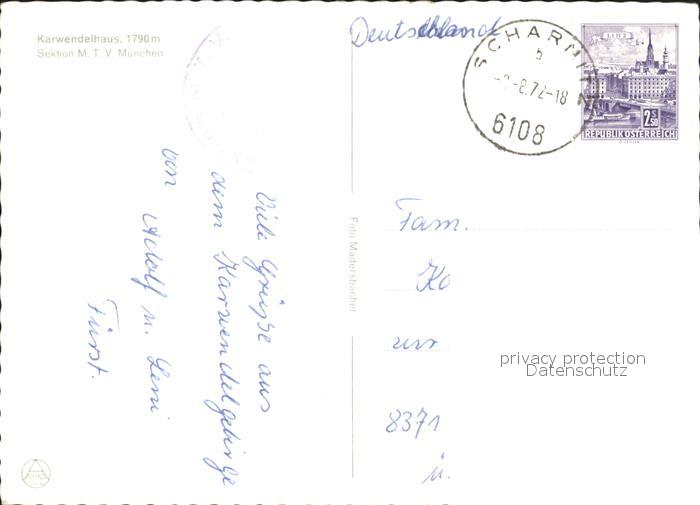 Karwendelhaus, 1790 m
Sektion M. T. V. München
Deutschland
SCHARNITZ
b
-8.72-18
6108
LINZ
2.50
REPUBLIK ÖSTERREICH
Viele Grüße aus
dem Karwendelgebirge
von Adolf u. Leni
Fürst.
Foto Madersbacher
Fam.
Ko
8371
privacy protection
Datenschutz